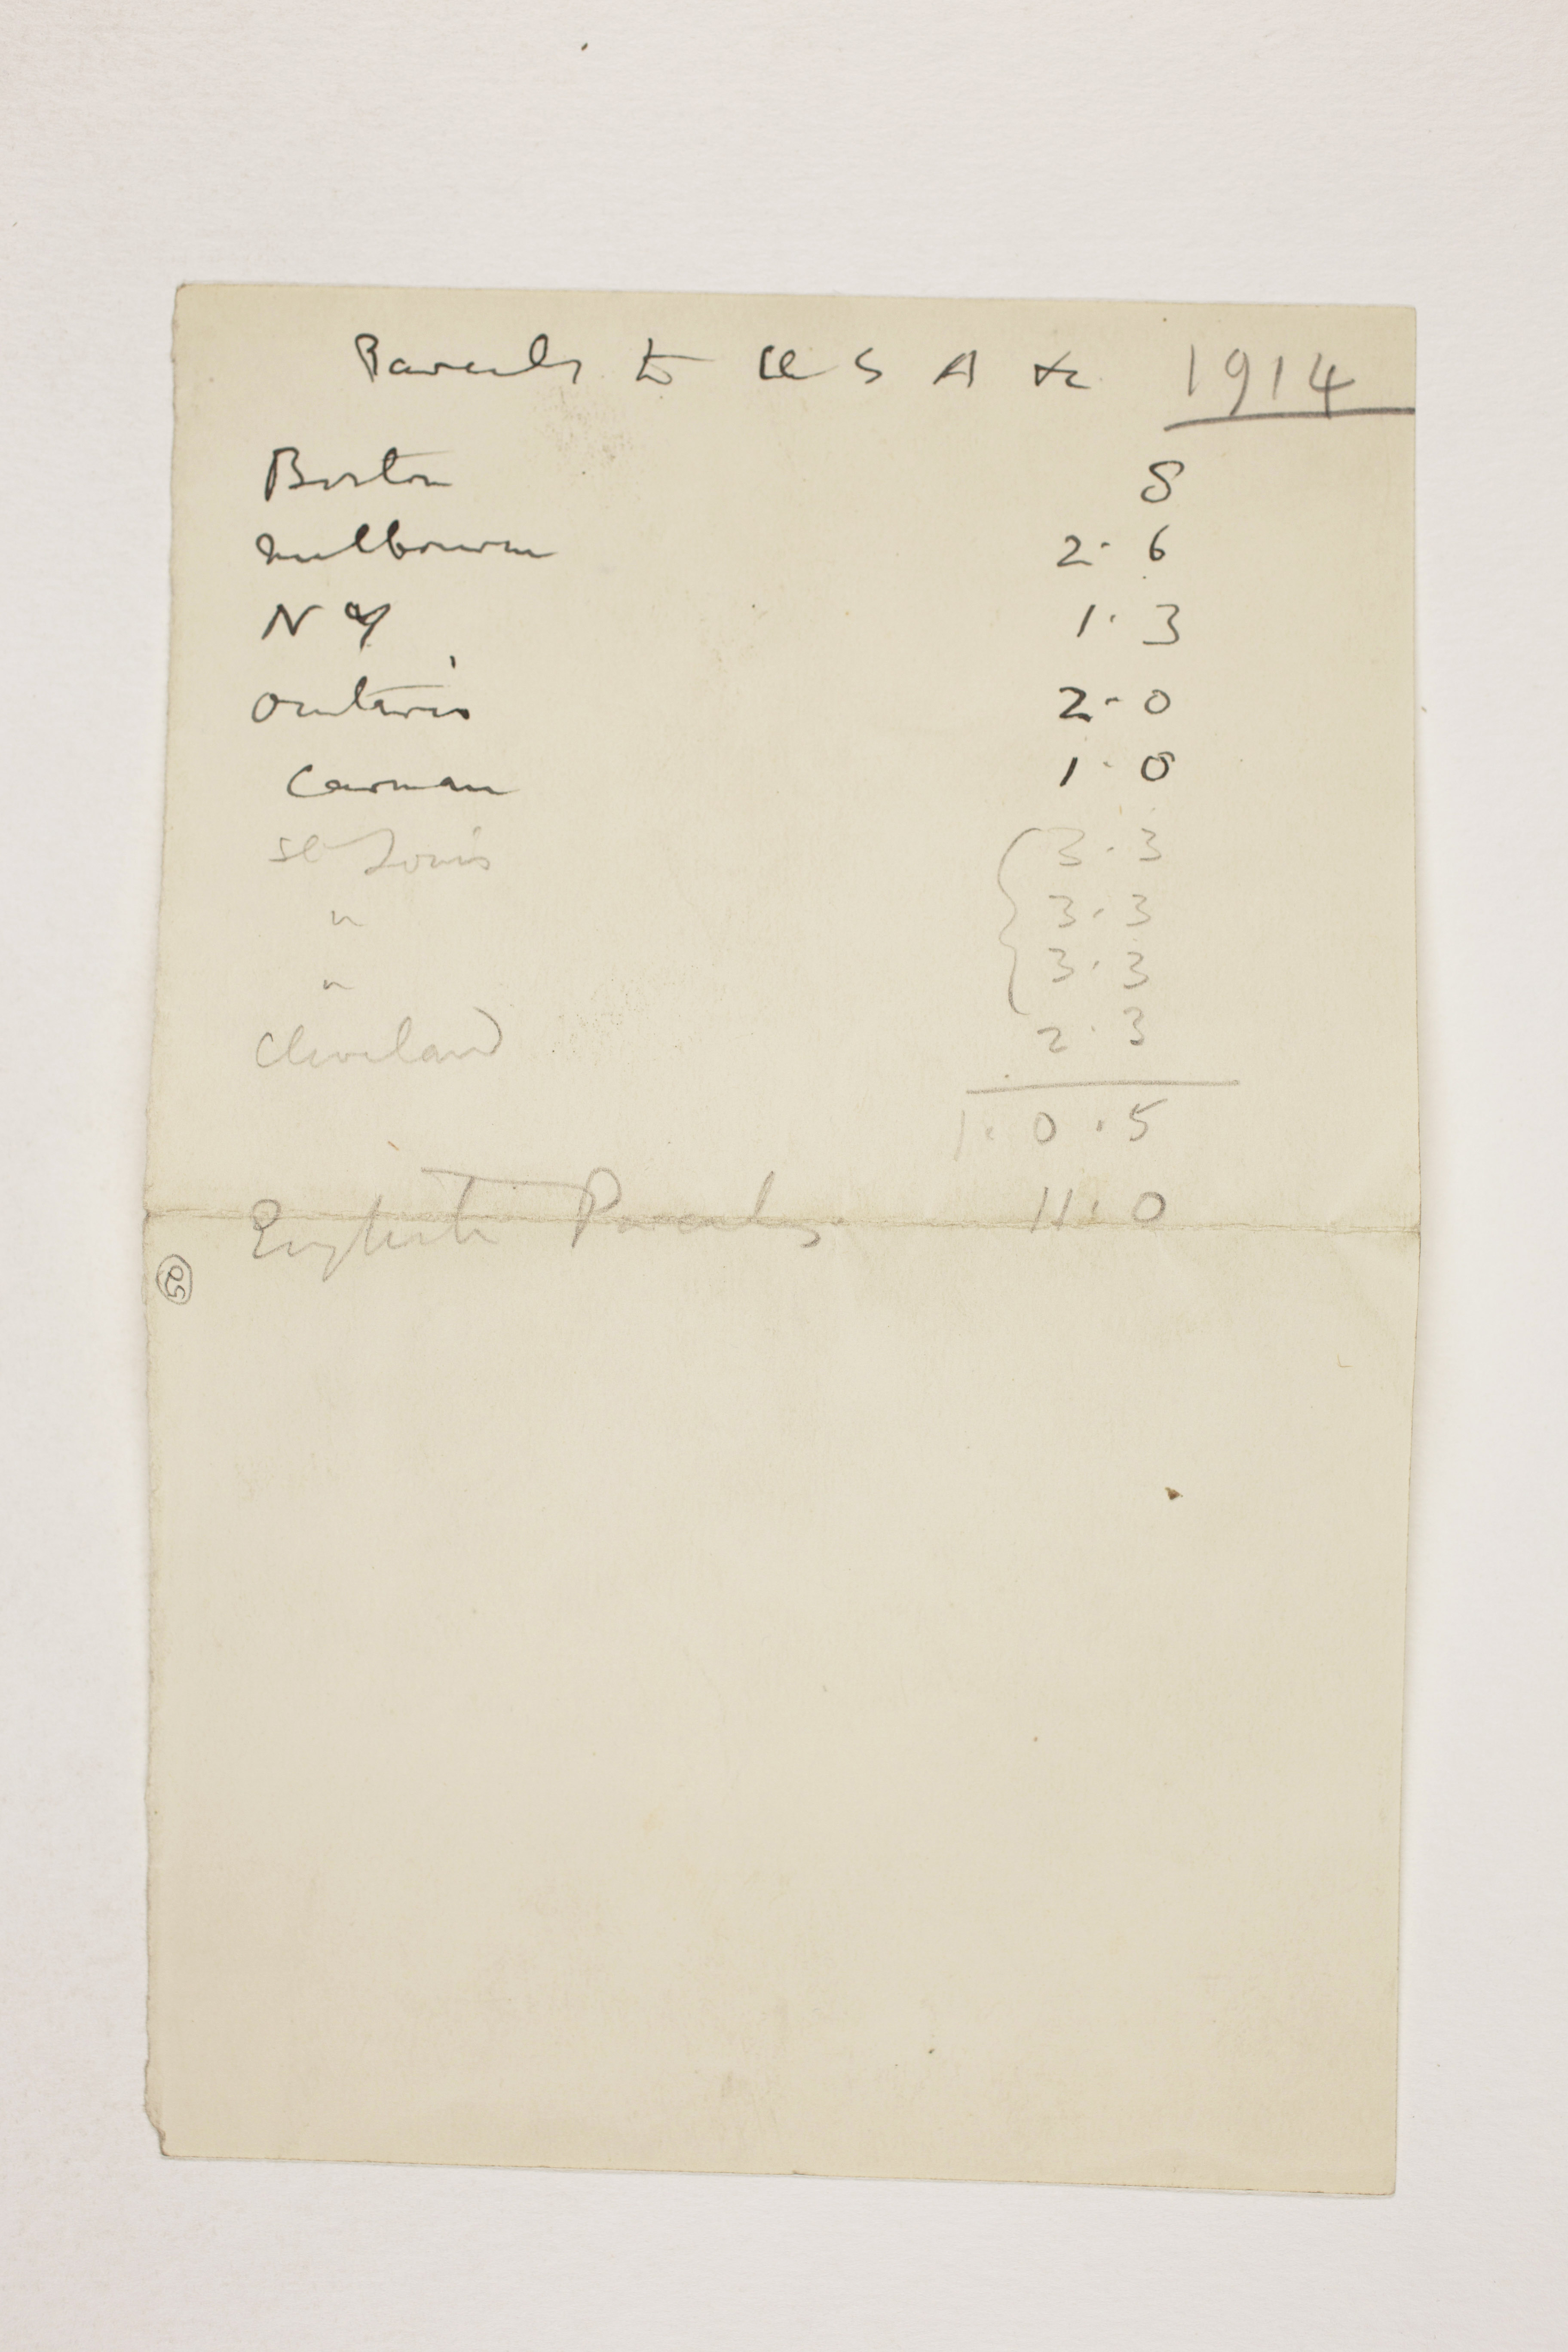 Parcels to U S A &c 1914
Boston 8
Melbourne 2·6
N Y 1·3
Ontario 2·0
Carman 1·8
St Louis 3·3
" 3·3
" 3·3
Cleveland 2·3
1·0·5
English Parcels 11·0
52